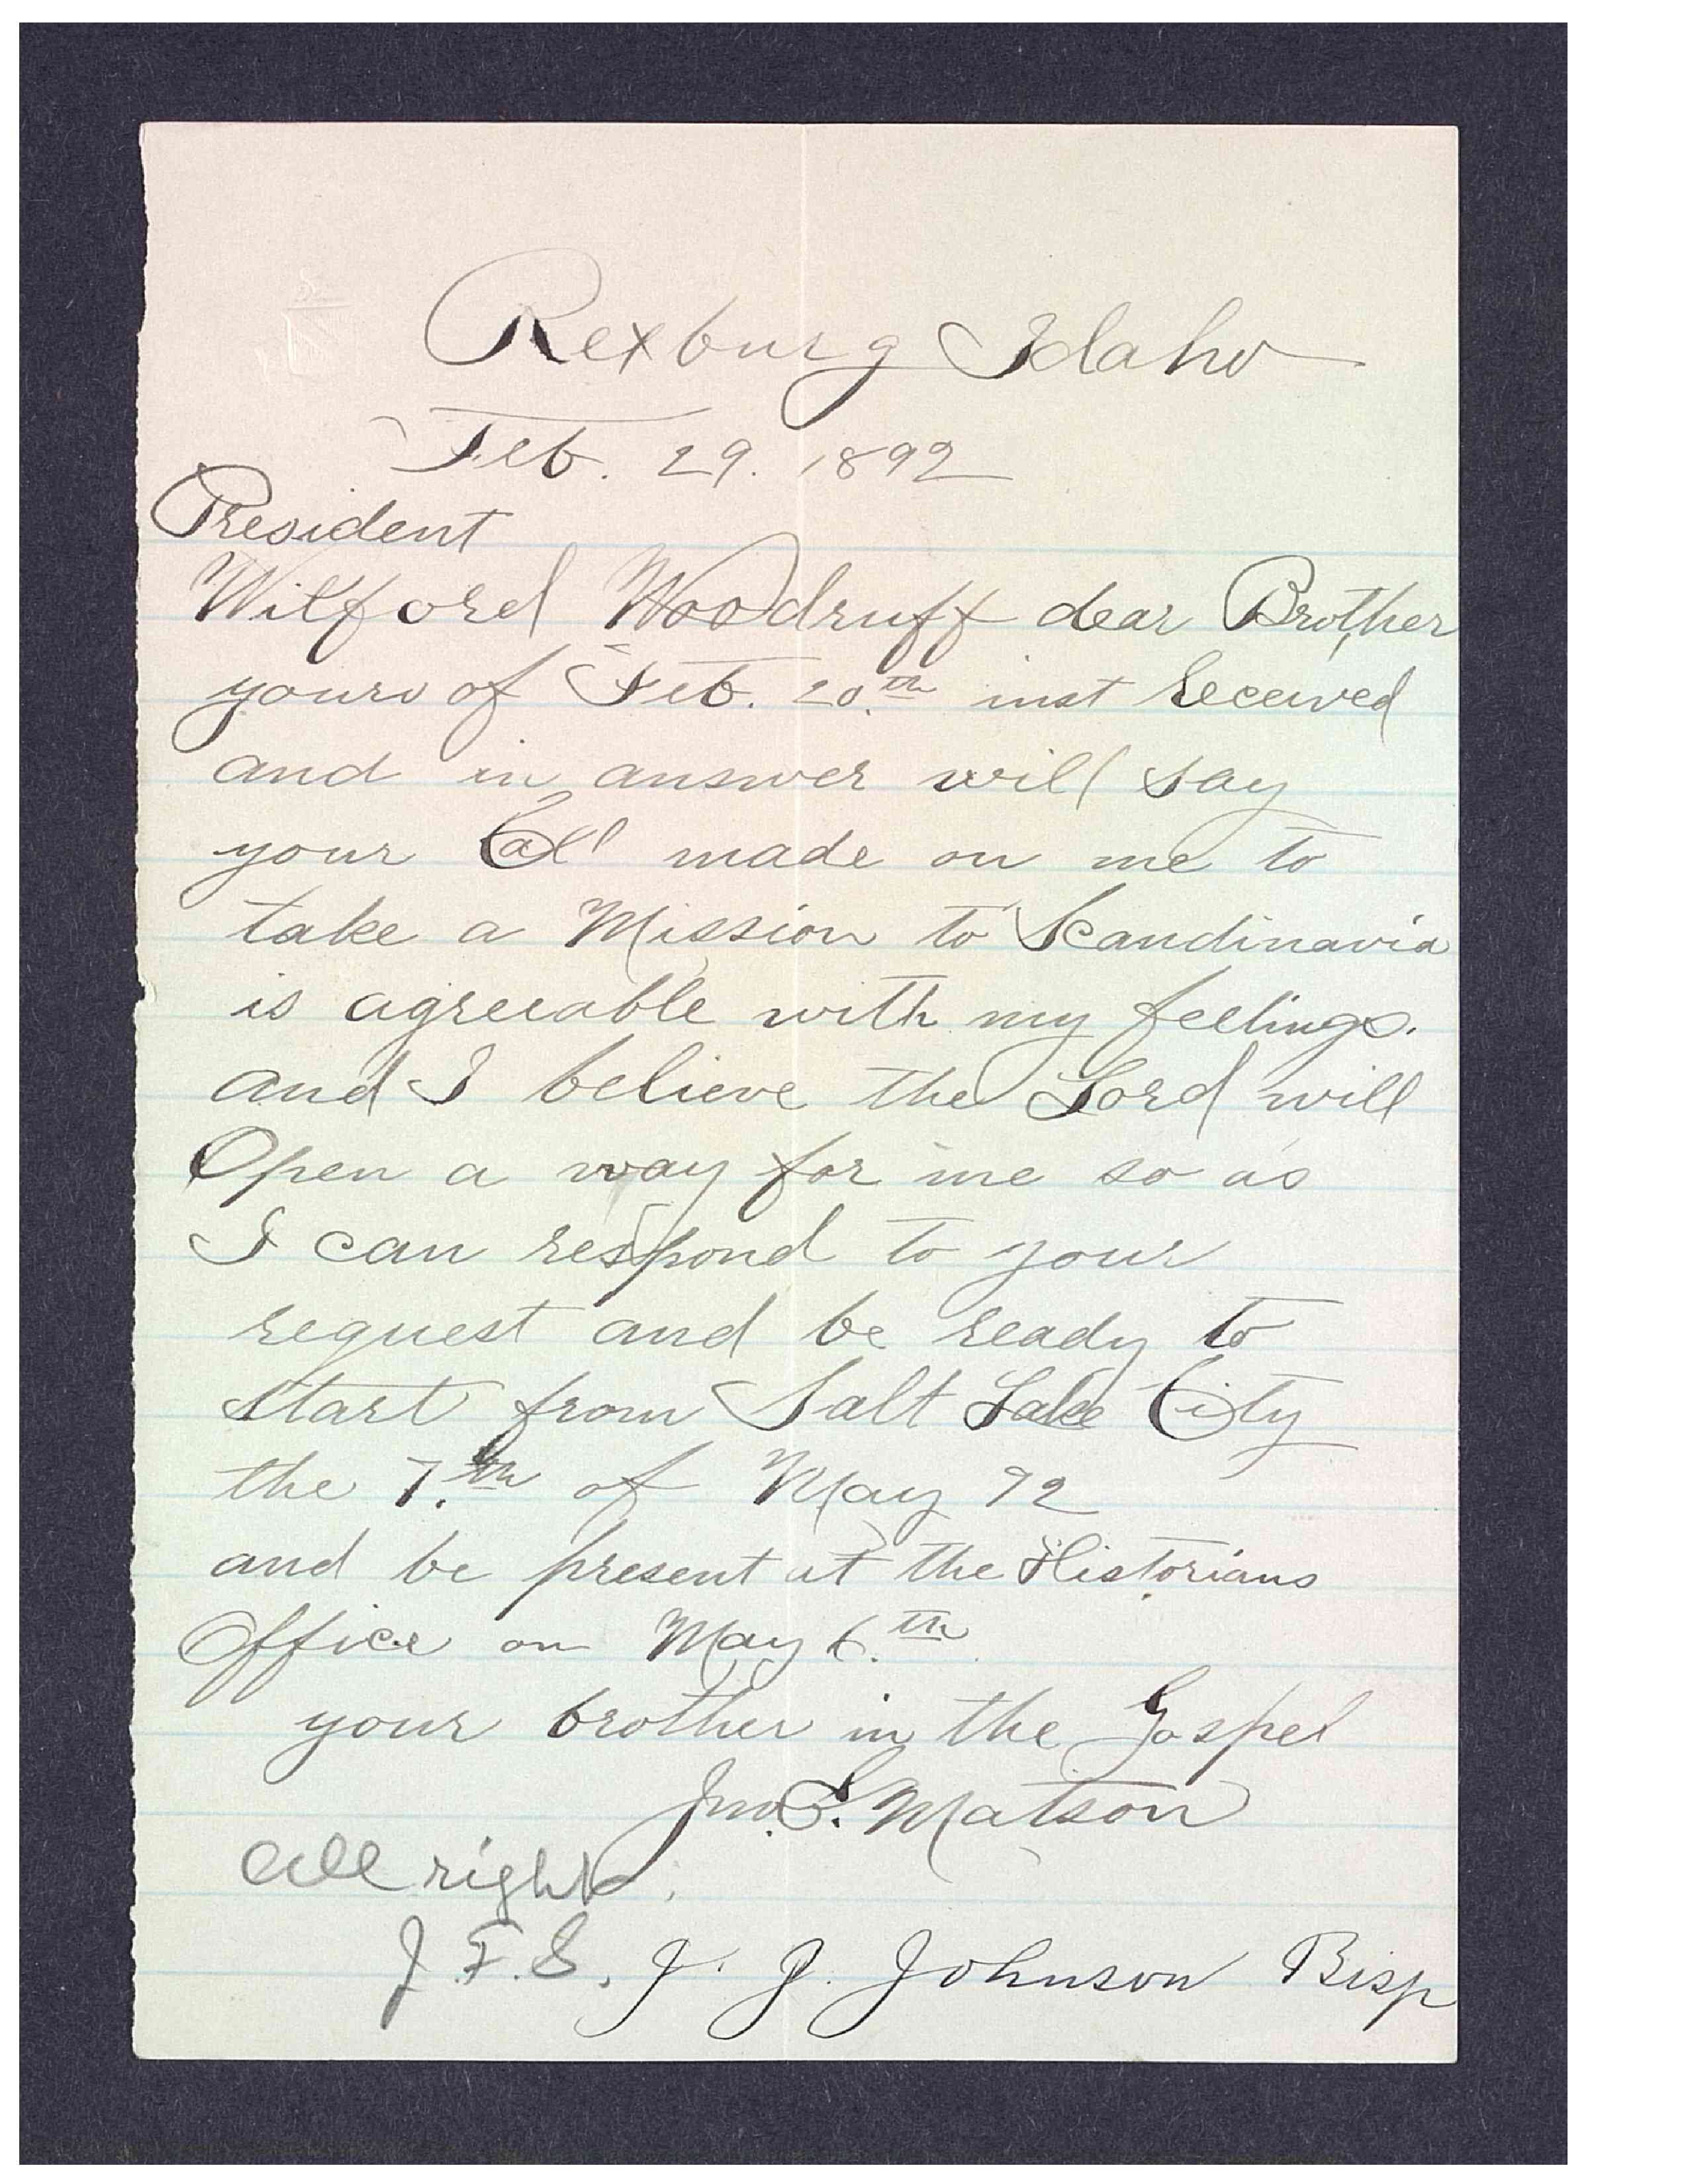 Rexburg Idaho
Feb. 29. 1892
President
Wilford Woodruff dear Brother
yours of Feb. 20.th inst received
and in answer will say
your Call made on me to
take a Mission to Scandinavia
is agreeable with my feelings.
and I believe the Lord will
Open a way for me so as
I can respond to your
request and be ready to
start from Salt Lake City
the 7.th of May 92
and be present at the Historians
Office on May 6.th
your brother in the Gospel
Jno. S. Matson
All right.
J.F.S. J. J. Johnson Bisp